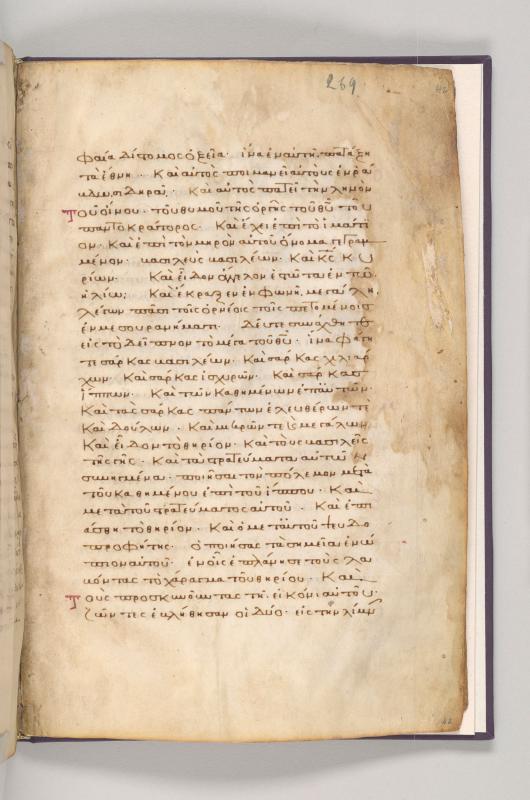 269
φαία δίστομος ὀξεῖα· ἵνα ἐν αὐτῆ πατάξη
τὰ ἔθνη· Καὶ αὐτὸς ποιμανεῖ αὐτοὺς ἐν ῥά
βδω σιδηρᾶ· Καὶ αὐτὸς πατεῖ τὴν λῃνὸν
Τοῦ οἴνου· τοῦ θυμοῦ τῆς ὀργῆς τοῦ θυ τοῦ
παντοκράτορος· Καὶ ἔχει ἐπὶ τὸ ἱμάτι
ον· Καὶ ἐπὶ τὸν μηρὸν αὐτοῦ ὄνομα γεγραμ
μένον· βασιλεὺς βασιλέων· Καὶ κς κυ
ρίων· Καὶ εἶδον ἄγγελον ἑστῶτα ἐν τῶ
ἡλίω· Καὶ ἔκραξεν ἐν φωνῆ μεγάλη
λέγων πᾶσι τοῖς ὀρνέοις τοῖς πετομένοις
ἐν μεσουρανήματι· Δεῦτε συνάχθητε
εἰς τὸ δεῖπνον τὸ μέγα τοῦ θυ· ἵνα φάγη
τε σάρκας βασιλέων· Καὶ σάρκας χιλιάρ
χων· Καὶ σάρκας ἰσχυρῶν· Καὶ σάρκας
ἵππων· Καὶ τῶν καθημένων ἐπ' αὐτῶν·
Καὶ τὰς σάρκας πάντων ἐλευθέρων τὲ
Καὶ δούλων· Καὶ μικρῶν τὲ καὶ μεγάλων
Καὶ εἶδον τὸ θηρίον· Καὶ τοὺς βασιλεῖς
τῆς γῆς· Καὶ τὰ στρατεύματα αὐτῶν
συνηγμένα· ποιῆσαι τὸν πόλεμον μετὰ
τοῦ καθημένου ἐπὶ τοῦ ἵππου· Καὶ
μετὰ τοῦ στρατεύματος αὐτοῦ· Καὶ ἐπι
άσθη τὸ θηρίον· Καὶ ὁ μετ' αὐτοῦ ψευδο
προφήτης· ὁ ποιήσας τὰ σημεῖα ἐνώ
πιον αὐτοῦ· ἐν οἷς ἐπλάνησε τοὺς λα
βόντας τὸ χάραγμα τοῦ θηρίου· Καὶ
Τοὺς προσκυνοῦντας τῆ εἰκόνι αὐτοῦ·
ζῶντες ἐβλήθησαν οἱ δύο· εἰς τὴν λίμνην